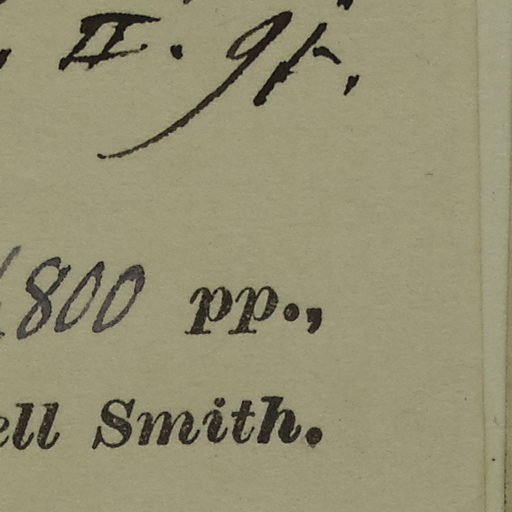 , II. 95,
1800 pp.,
ell Smith.